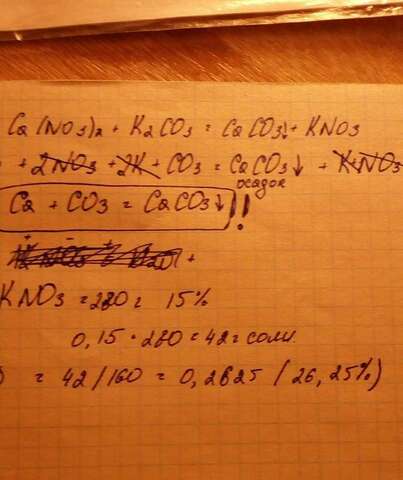 Ca(NO3)2 + K2CO3 = CaCO3↓ + KNO3
+ 2NO3 + 2K + CO3 = CaCO3↓ + K+NO3
осадок
Ca + CO3 = CaCO3↓ !!
KNO3 = 280г 15%
0,15 • 280 = 42г соли.
) = 42/160 = 0,2625 (26,25%)